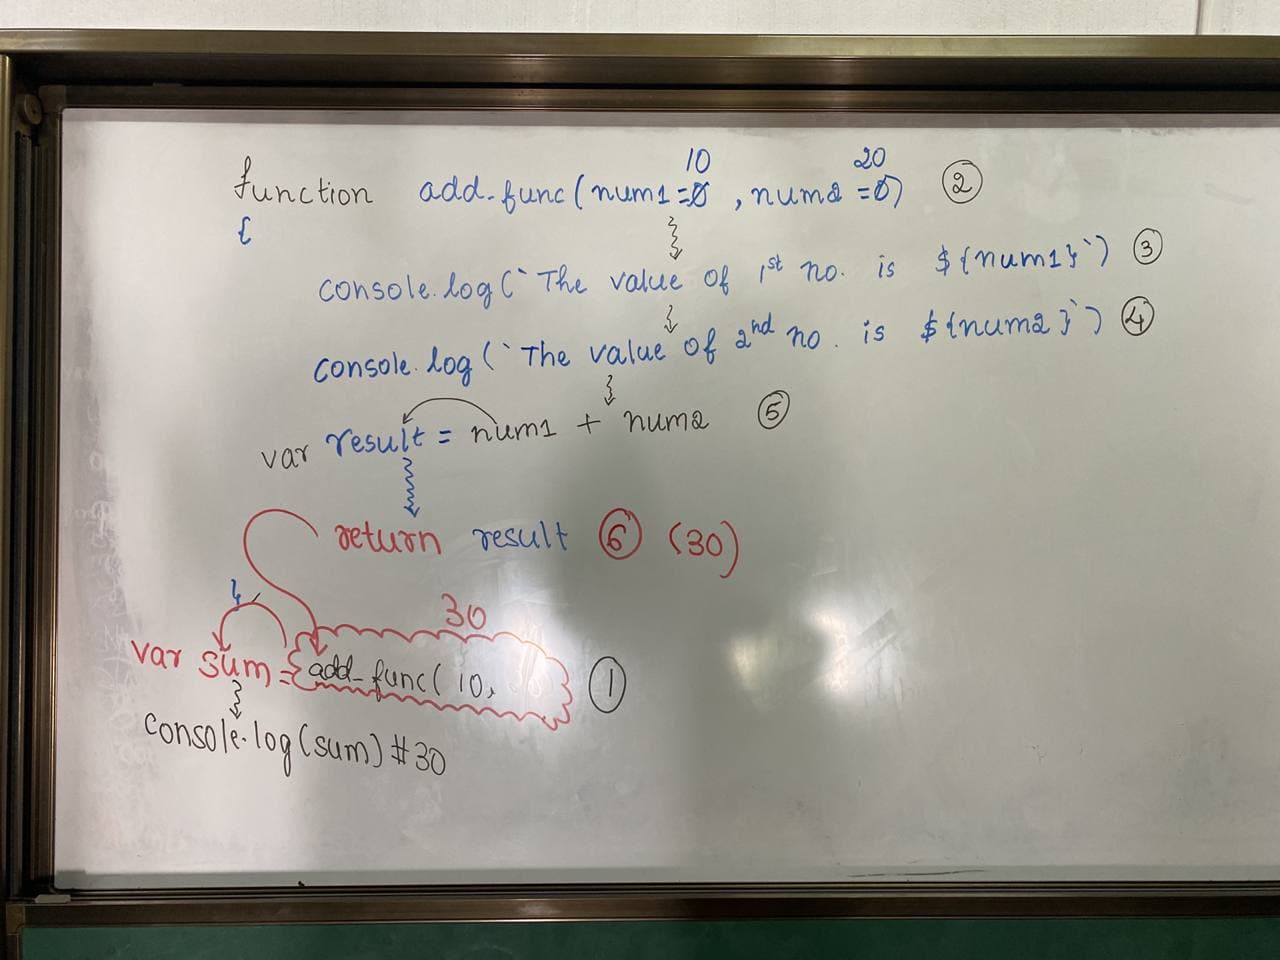 10 20
function add_func(num1=0, num2=0) ②
{
console.log(`The value of 1st no. is ${num1}`) ③
console.log(`The value of 2nd no. is ${num2}`) ④
var result = num1 + num2 ⑤
return result ⑥ (30)
30
var sum = add_func(10, ①
console.log(sum) #30